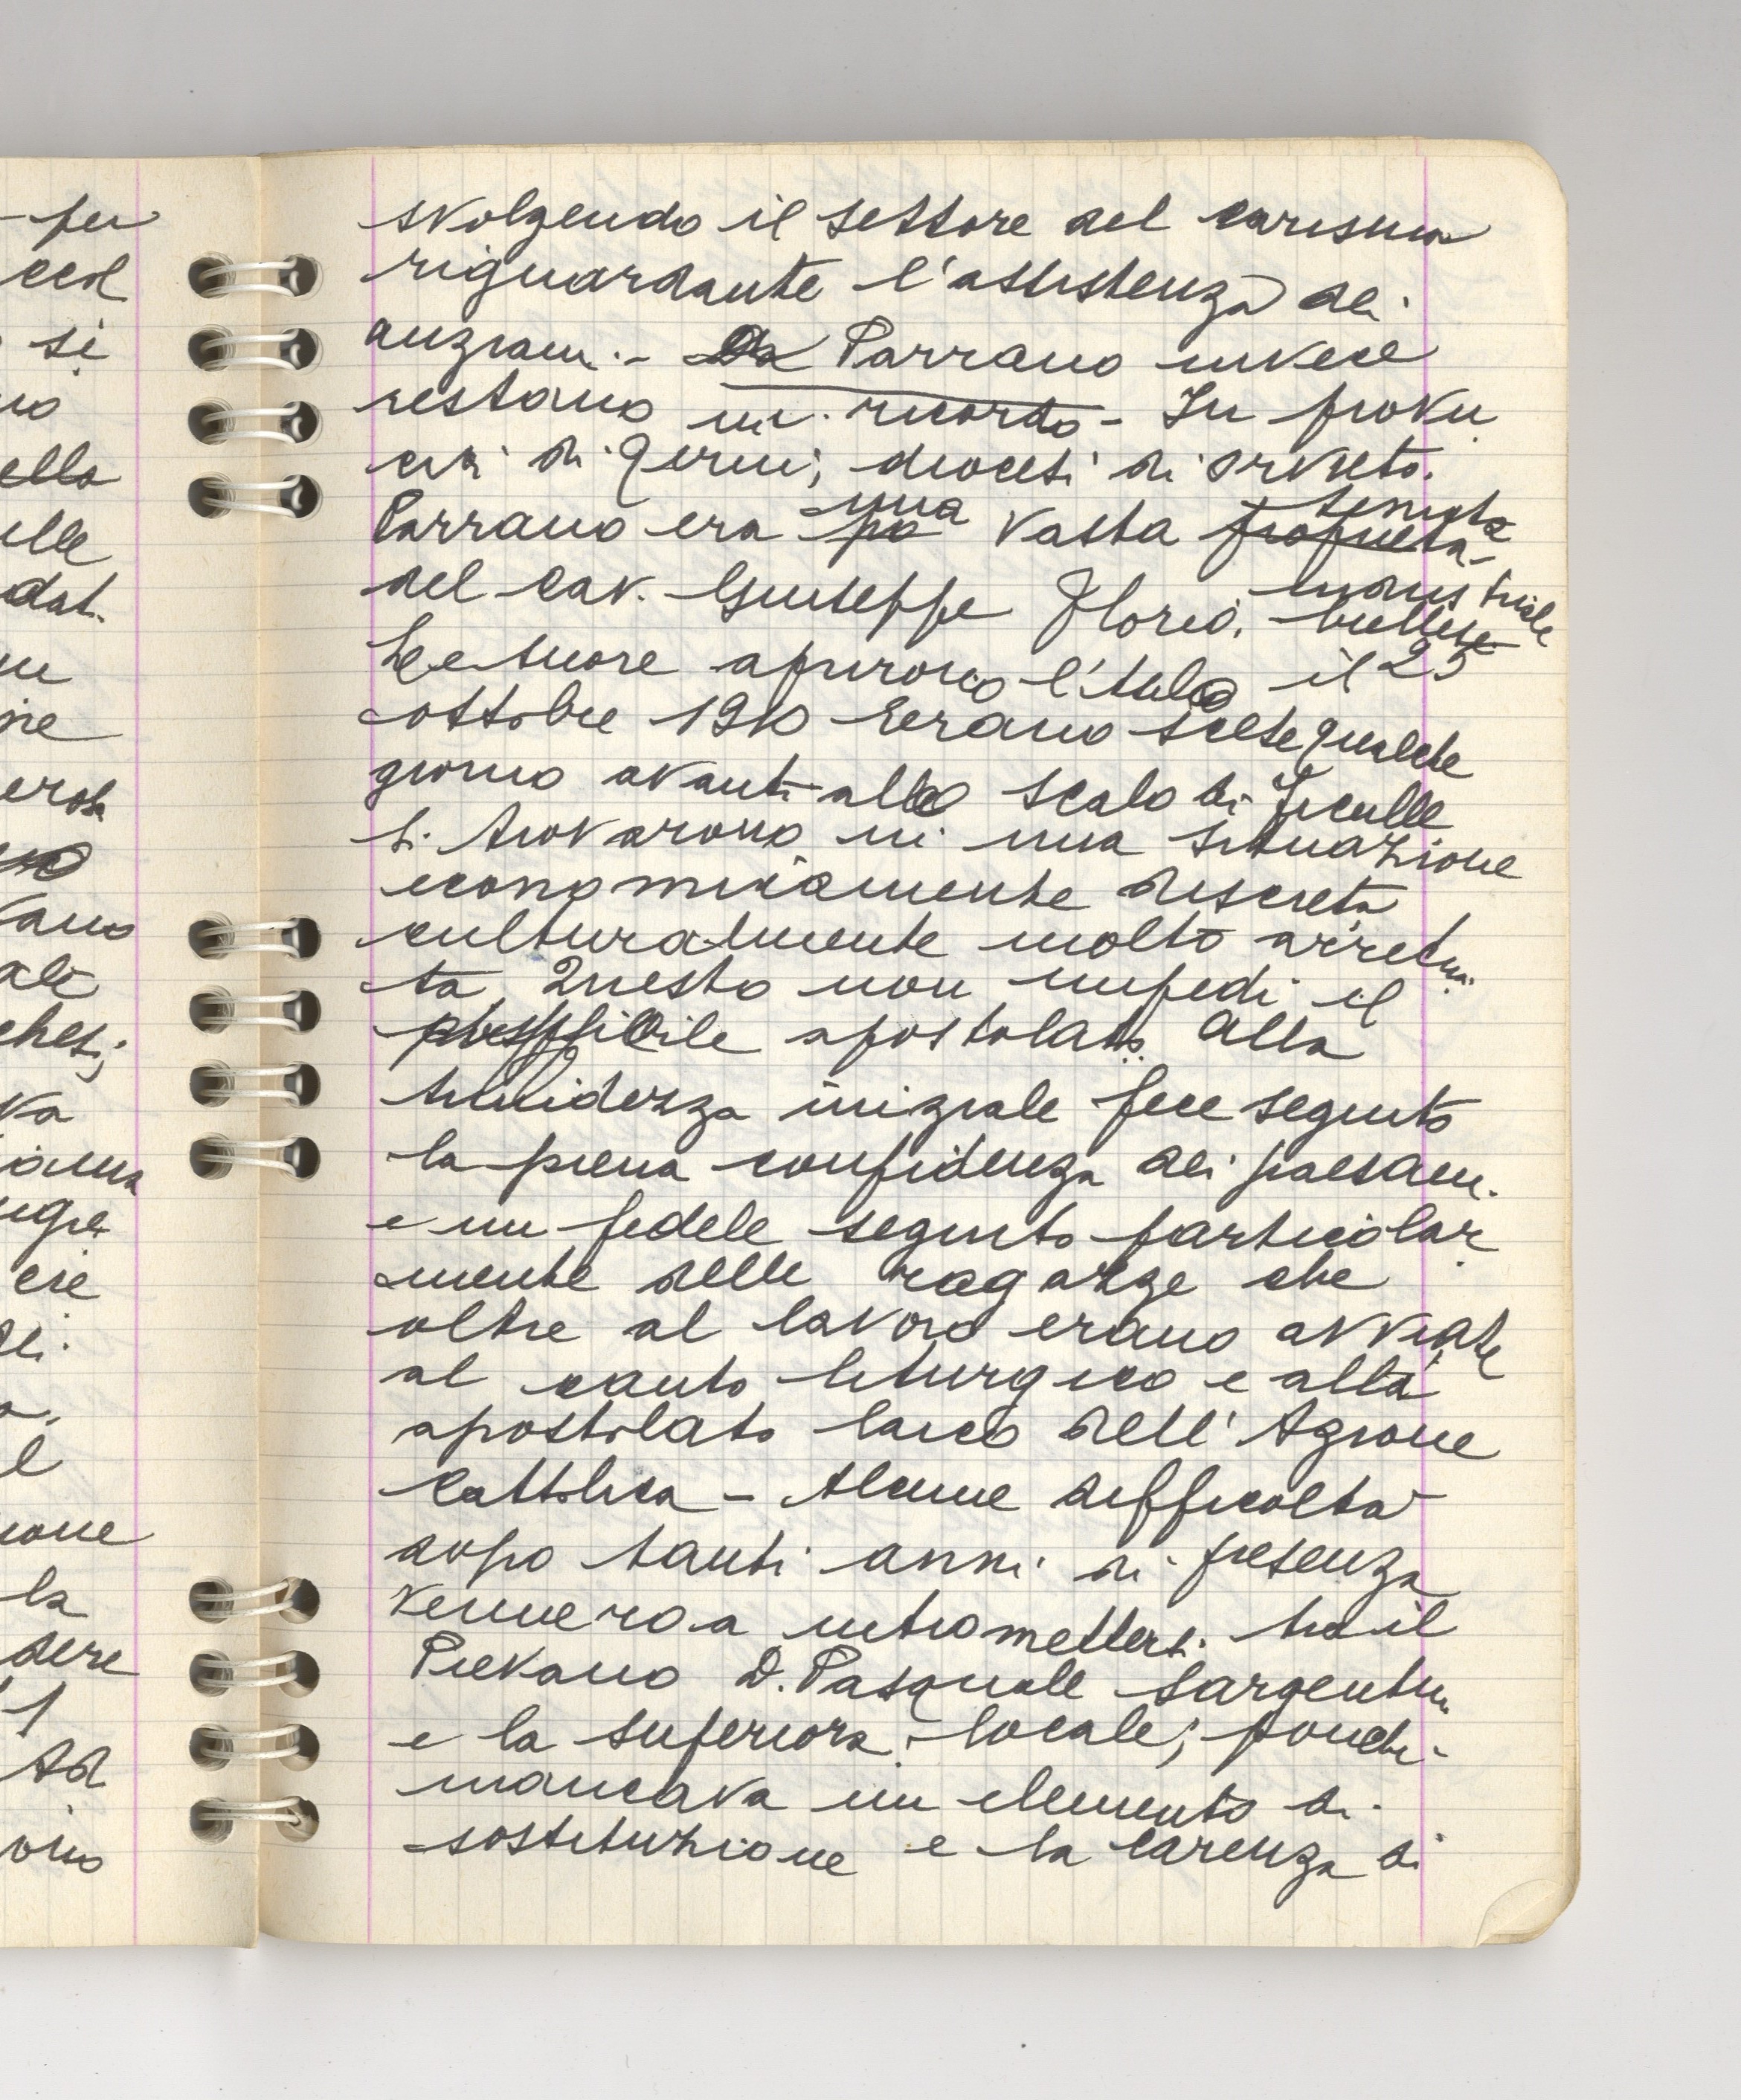 svolgendo il settore del carisma
riguardante l'assistenza dei
anziani. - Parrano invece
restano un ricordo - In provin
cia di Terni, diocesi di Orvieto.
Parrano era una vasta tenuta
del Cav. Giuseppe Florio, industriale
Le suore aprirono l'Asilo il 25
ottobre 1910 Erano scese qualche
giorno avanti allo scalo di Ficulle
si trovarono in una situazione
economicamente discreta
culturalmente molto arretra
ta Questo non impedì il
possibile apostolato. Alla
timidezza iniziale fece seguito
la piena confidenza dei paesani
e un fedele seguito particolar
mente delle ragazze che
oltre al lavoro erano avviate
al canto liturgico e alla
apostolato laico dell'Azione
Cattolica - Alcune difficoltà
dopo tanti anni di presenza
vennero a intromettersi tra il
Pievano D. Pasquale Sargentini
e la superiora locale;
mancava un elemento di
sostituzione e la carenza di
per
si
ella
elle
dat.
va
la
dere